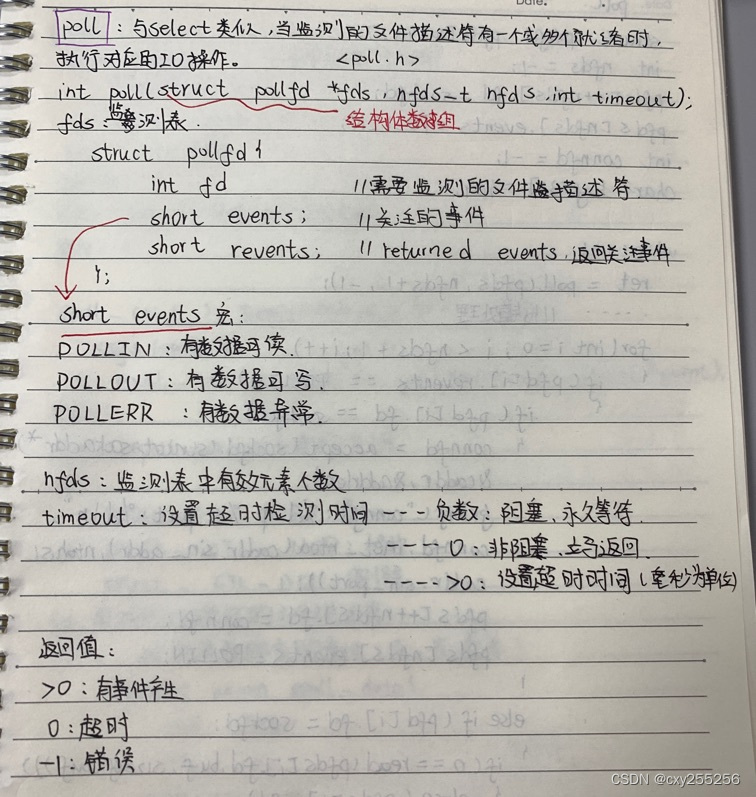 Date.
poll : 与select类似,当监测的文件描述符有一个或多个就绪时,
执行对应的IO操作。 <poll.h>
int poll(struct pollfd *fds, nfds_t nfds, int timeout);
fds: 监测表. 结构体数组
struct pollfd {
int fd //需要监测的文件描述符
short events; //关注的事件
short revents; // returned events.返回关注事件
};
short events 宏:
POLLIN : 有数据可读.
POLLOUT : 有数据可写.
POLLERR : 有数据异常.
nfds : 监测表中有效元素个数
timeout : 设置超时检测时间 --- 负数: 阻塞,永久等待.
---- 0: 非阻塞,立马返回.
---- >0: 设置超时时间(毫秒为单位)
返回值:
>0 : 有事件产生
0 : 超时
-1 : 错误
CSDN @cxy255256